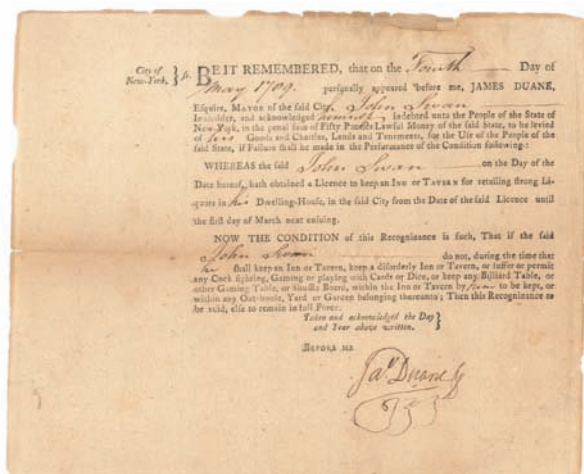 City of New-York, } ss. BE IT REMEMBERED, that on the Fourth Day of
May 1789 personally appeared before me, JAMES DUANE,
Esquire, MAYOR of the said City, John Swan
Innholder, and acknowledged himself indebted unto the People of the State of
New-York, in the penal sum of Fifty Pounds Lawful Money of the said State, to be levied
of his Goods and Chattles, Lands and Tenements, for the Use of the People of the
said State, if Failure shall be made in the Performance of the Condition following:
WHEREAS the said John Swan on the Day of the
Date hereof, hath obtained a Licence to keep an INN or TAVERN for retailing strong Li-
quors in his Dwelling-House, in the said City from the Date of the said Licence until
the first day of March next ensuing.
NOW THE CONDITION of this Recognizance is such, That if the said
John Swan do not, during the time that
he shall keep an Inn or Tavern, keep a disorderly Inn or Tavern, or suffer or permit
any Cock fighting, Gaming or playing with Cards or Dice, or keep any Billiard Table, or
other Gaming Table, or Shuffle Board, within the Inn or Tavern by him to be kept, or
within any Out-house, Yard or Garden belonging thereunto; Then this Recognizance to
be void, else to remain in full Force.
Taken and acknowledged the Day }
and Year above written.
BEFORE ME
Jas Duane